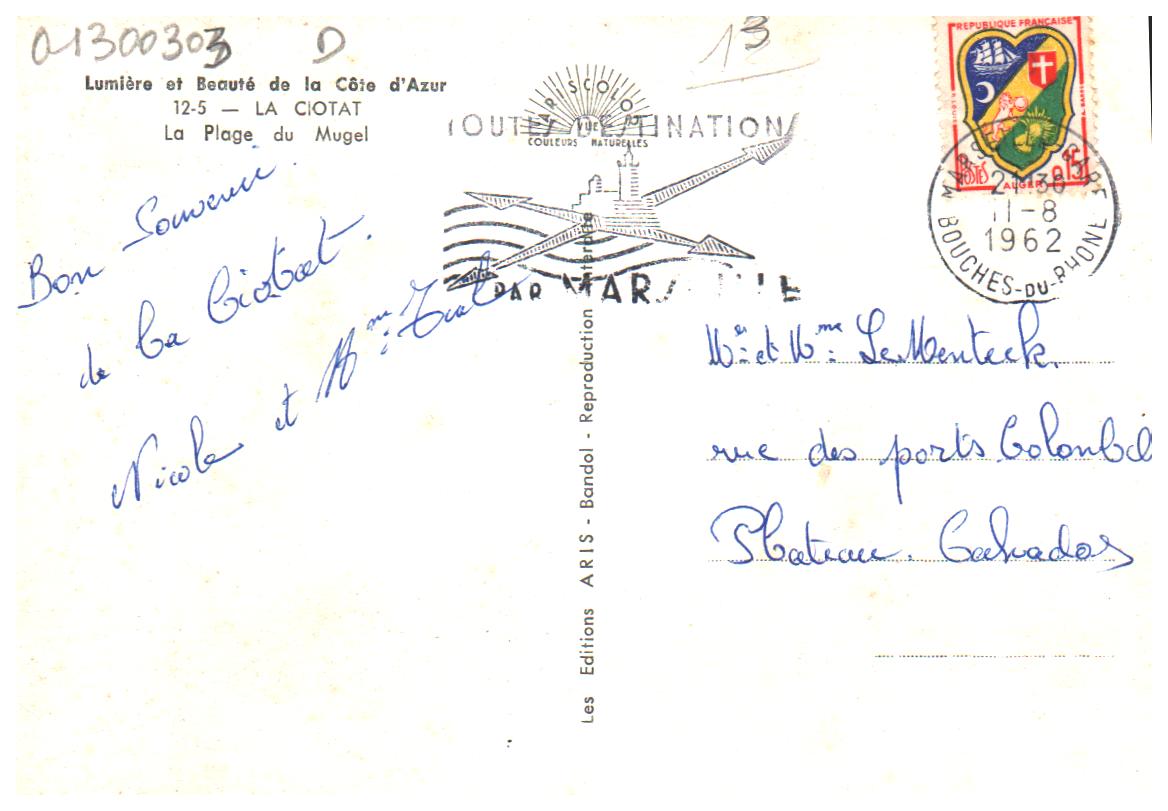 01300303 D
13
Lumière et Beauté de la Côte d'Azur
12-5 — LA CIOTAT
La Plage du Mugel
ARISCOLOR
VUE
COULEURS NATURELLES
TOUTES DESTINATIONS
PAR MARSEILLE
REPUBLIQUE FRANÇAISE
POSTES ALGER 0,15
MARSEILLE-GARE
21H30
11-8
1962
BOUCHES-DU-RHONE
Bon Souvenir
de La Ciotat.
Nicole et Mme
Les Editions ARIS - Bandol - Reproduction interdite
Mr et Mme LeMenteck.
rue des ports Colombel
Plateau. Calvados